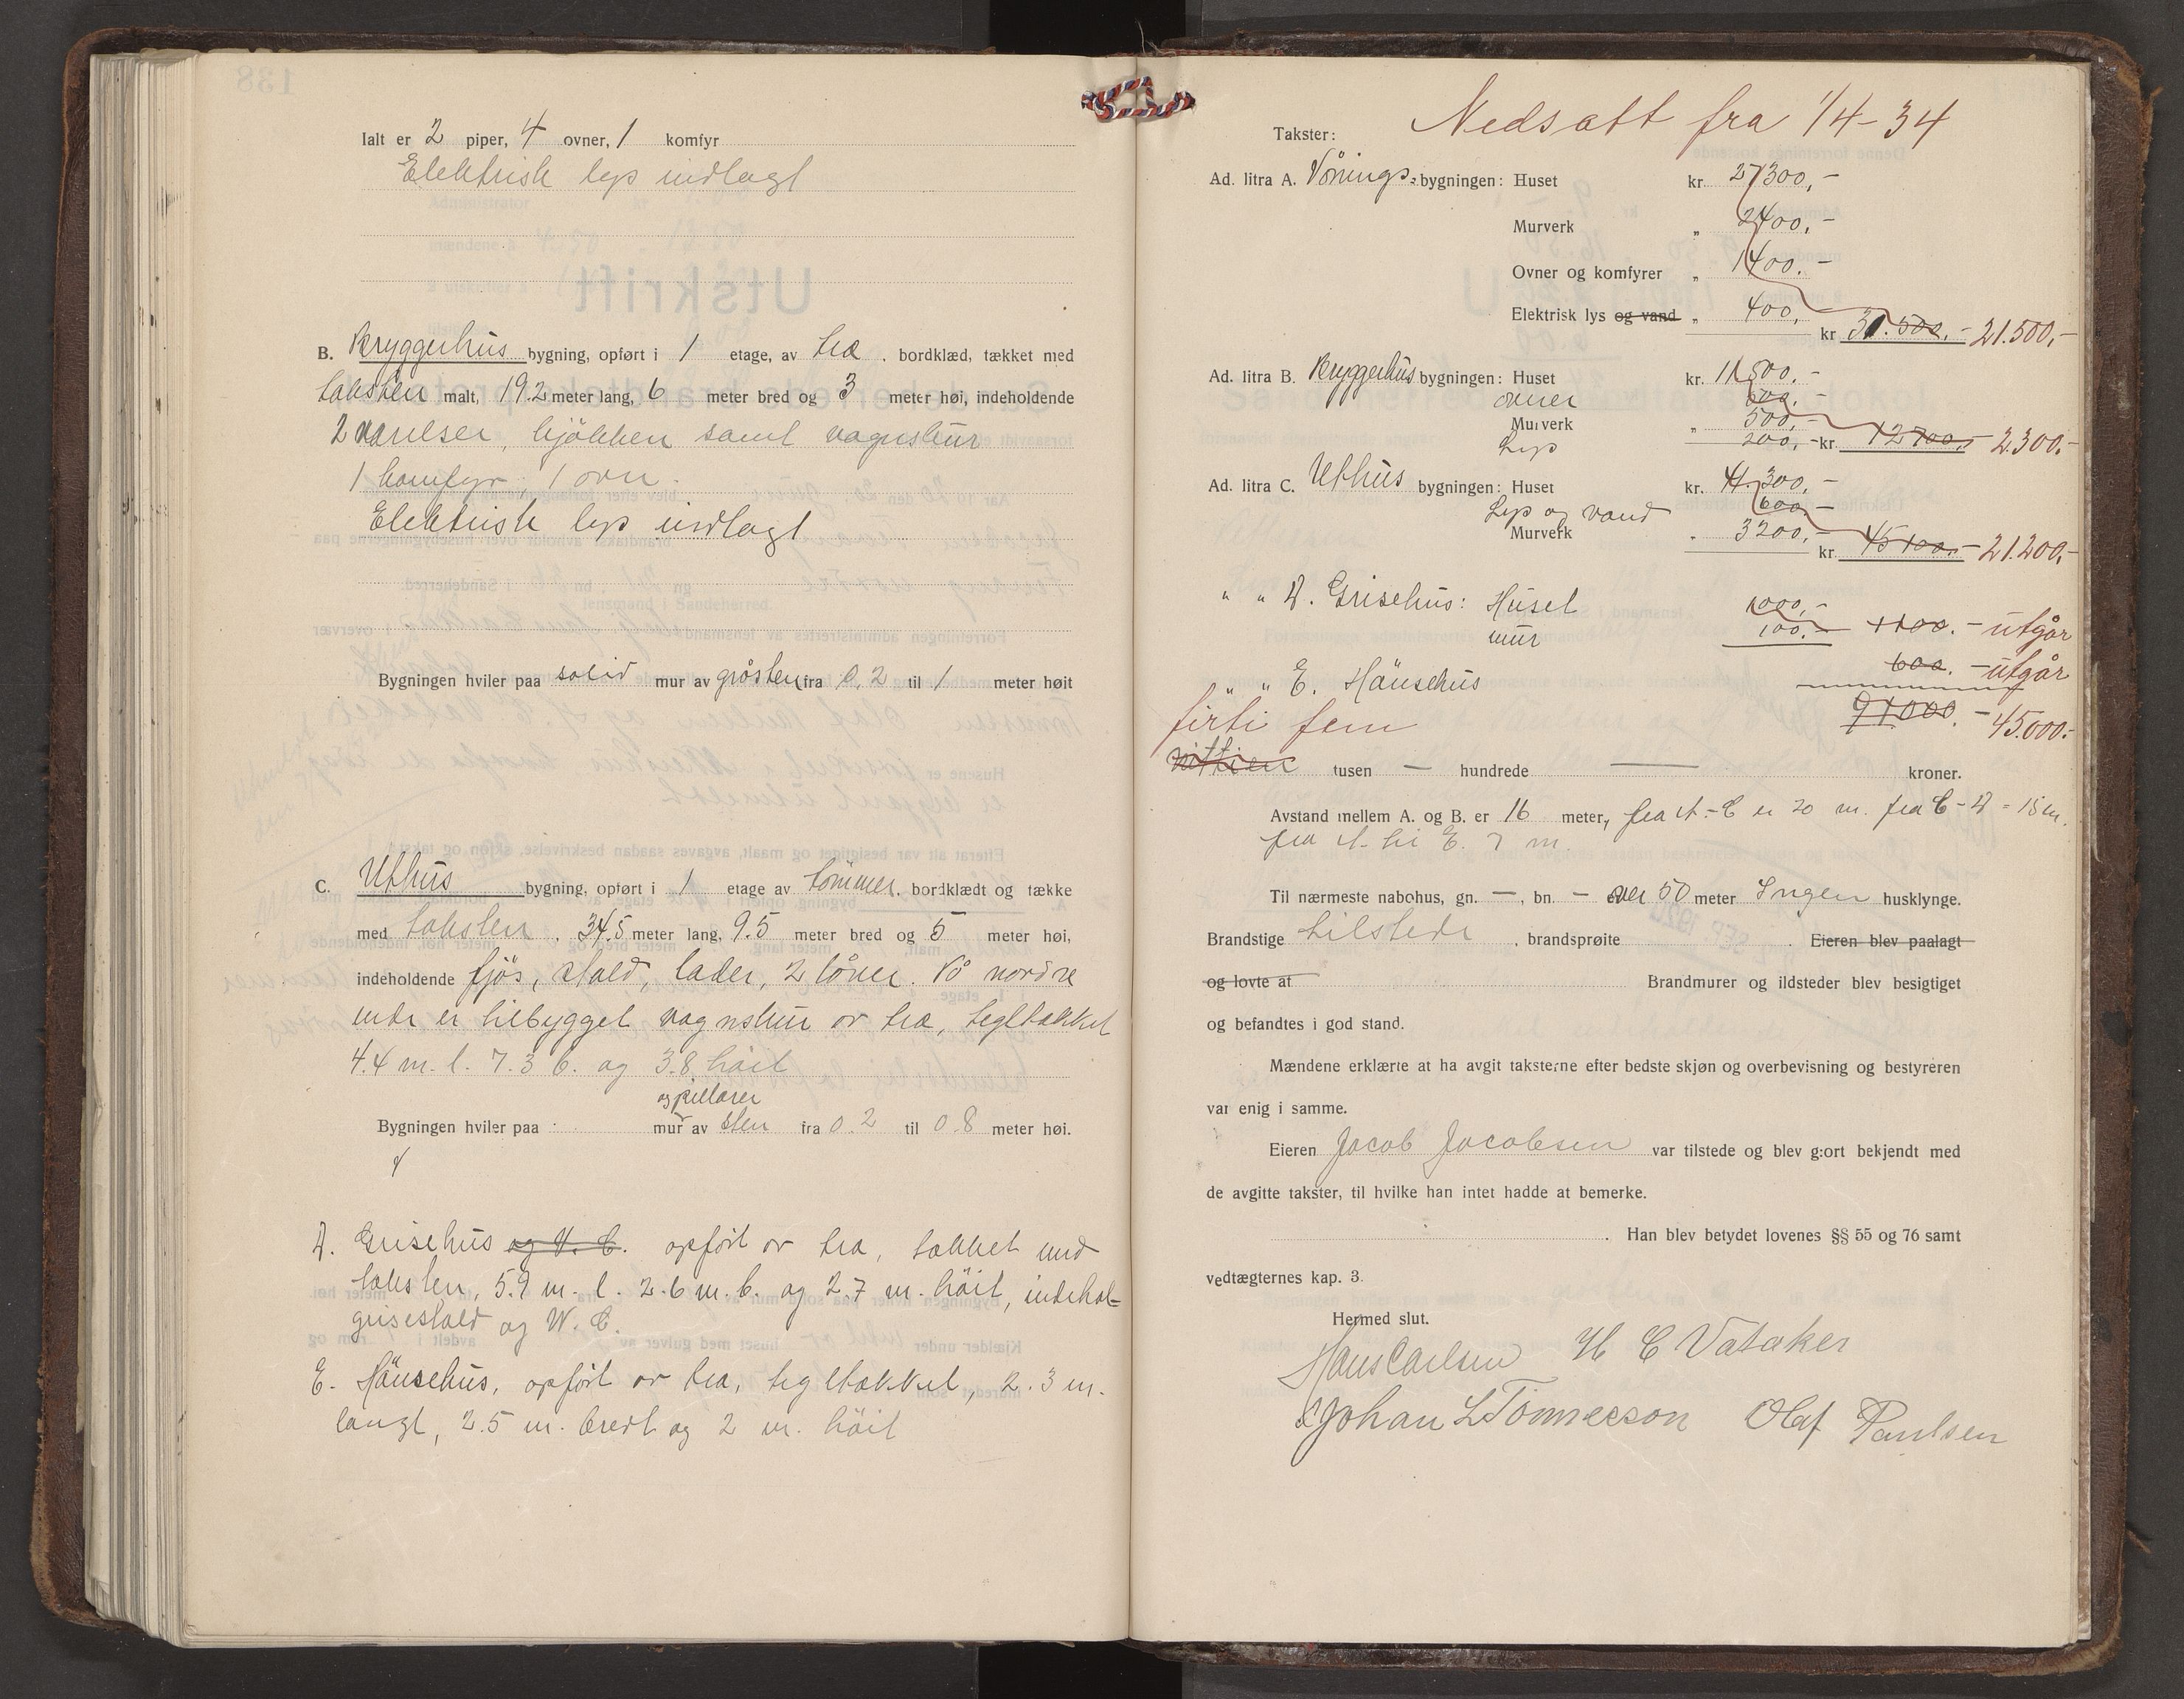 Ialt er 2 piper, 4 ovner, 1 komfyr
Elektrisk lys indlagt
B. Bryggerhus bygning, opført i 1 etage, av træ, bordklæd, tækket med
taksten malt, 19.2 meter lang, 6 meter bred og 3 meter høi, indeholdende
2 værelser, kjökken samt vognskur
1 komfyr, 1 ovn.
Elektrisk lys indlagt
Bygningen hviler paa solid mur av gråsten fra 0,2 til 1 meter høit
C. Uthus bygning, opført i 1 etage av tömmer, bordklædt og tække
med taksten, 34.5 meter lang, 9.5 meter bred og 5 meter høi,
indeholdende fjös, stald, lader, 2 låver. På nordre
ende er tilbygget vognskur av træ, tegltækket
4.4 m. l. 7.3 b. og 3.8 höit
og pillarer
Bygningen hviler paa mur av sten fra 0.2 til 0.8 meter høi.
D. Grisehus og W. C. opfört av træ, tækket med
taksten, 5.9 m. l. 2.6 m. b. og 2.7 m. höit, indehol-
grisestald og W. C.
E. Hönsehus, opfört av træ, tegltækket, 2.3 m.
langt, 2.5 m. bredt og 2 m. höit
Nedsatt fra 1/4-34
Takster:
Ad. litra A. Vånings-bygningen: Huset kr. 27300,-
Murverk " 2400,-
Ovner og komfyrer " 1400.-
Elektrisk lys og vand " 400,
kr 31.500.- 21.500,-
Ad. litra B. Bryggerhus bygningen: Huset kr. 11500.-
ovner 500.-
Murverk " 500,-
Lys 200,- kr. 12700,- 2.300.-
Ad. litra C. Uthus bygningen: Huset kr. 41.300,-
Lys og vand 600.-
Murverk " 3200,-
kr. 45100.- 21.200,-
" " D. Grisehus: Huset 1000,-
mur 100.- 1100.- utgår
" " E. Hönsehus 600. - utgår
91000.- 45.000.-
firti fem
nittien tusen — hundrede — kroner.
Avstand mellem A. og B. er 16 meter, fra A.-C er 20 m. fra C-D = 15 m.
fra A. til E. 7 m.
Til nærmeste nabohus, gn. —, bn. — over 50 meter Ingen husklynge.
Brandstige tilstede, brandsprøite . Eieren blev paalagt
og lovte at Brandmurer og ildsteder blev besigtiget
og befandtes i god stand.
Mændene erklærte at ha avgit taksterne efter bedste skjøn og overbevisning og bestyreren
var enig i samme.
Eieren Jacob Jacobsen var tilstede og blev gjort bekjendt med
de avgitte takster, til hvilke han intet hadde at bemerke.
. Han blev betydet lovenes §§ 55 og 76 samt
vedtægternes kap. 3.
Hermed slut.
Hans Carlsen H C Vataker
Johan L Tönnesson Olaf Paulsen